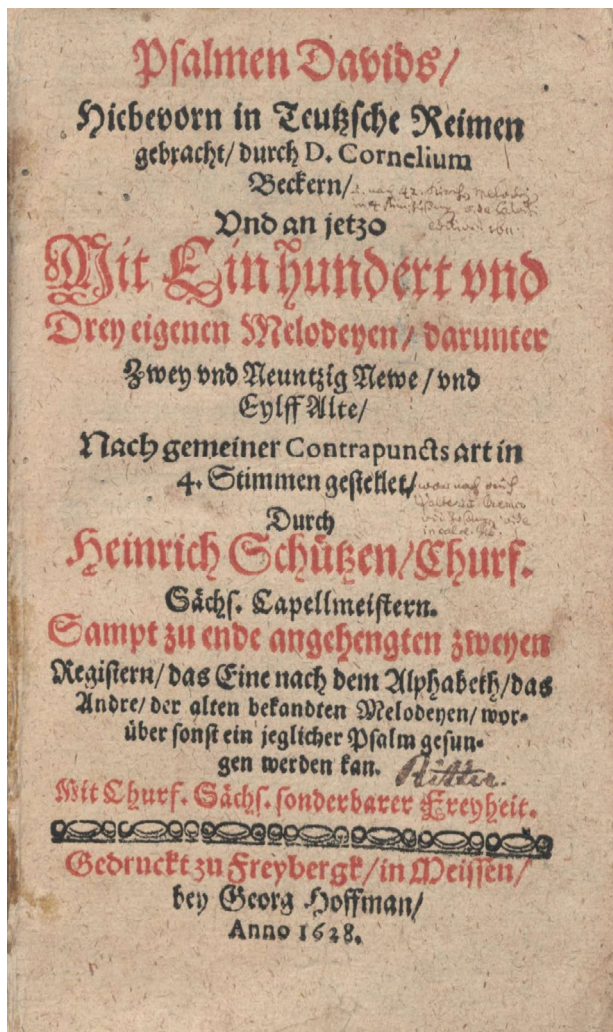 Psalmen Davids/
Hiebevorn in Teutzsche Reimen
gebracht/ durch D. Cornelium
Beckern/
Vnd an jetzo
Mit Einhundert vnd
Drey eigenen Melodeyen/ darunter
Zwey vnd Neuntzig Newe/ vnd
Eylff Alte/
Nach gemeiner Contrapuncts art in
4. Stimmen gestellet/
Durch
Heinrich Schützen/ Churf.
Sächs. Capellmeistern.
Sampt zu ende angehengten zweyen
Registern/ das Eine nach dem Alphabeth/ das
Andre/ der alten bekandten Melodeyen/ wor-
über sonst ein jeglicher Psalm gesun-
gen werden kan.
Ritter.
Mit Churf. Sächs. sonderbarer Freyheit.
Gedruckt zu Freybergk/ in Meissen/
bey Georg Hoffman/
Anno 1628.